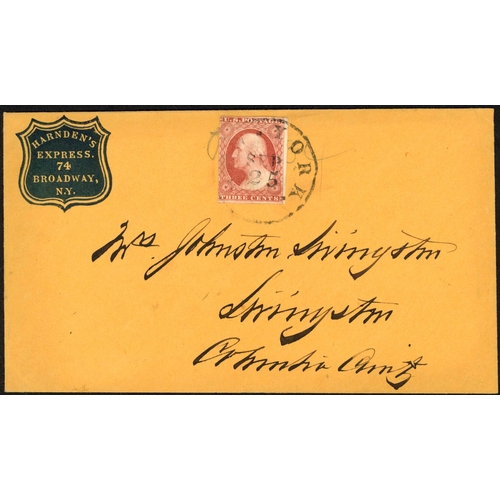 HARNDEN'S
EXPRESS.
74
BROADWAY,
N.Y.
U.S. POSTAGE
THREE CENTS
YORK
25
Mrs. Johnston Livingston
Livingston
Columbia